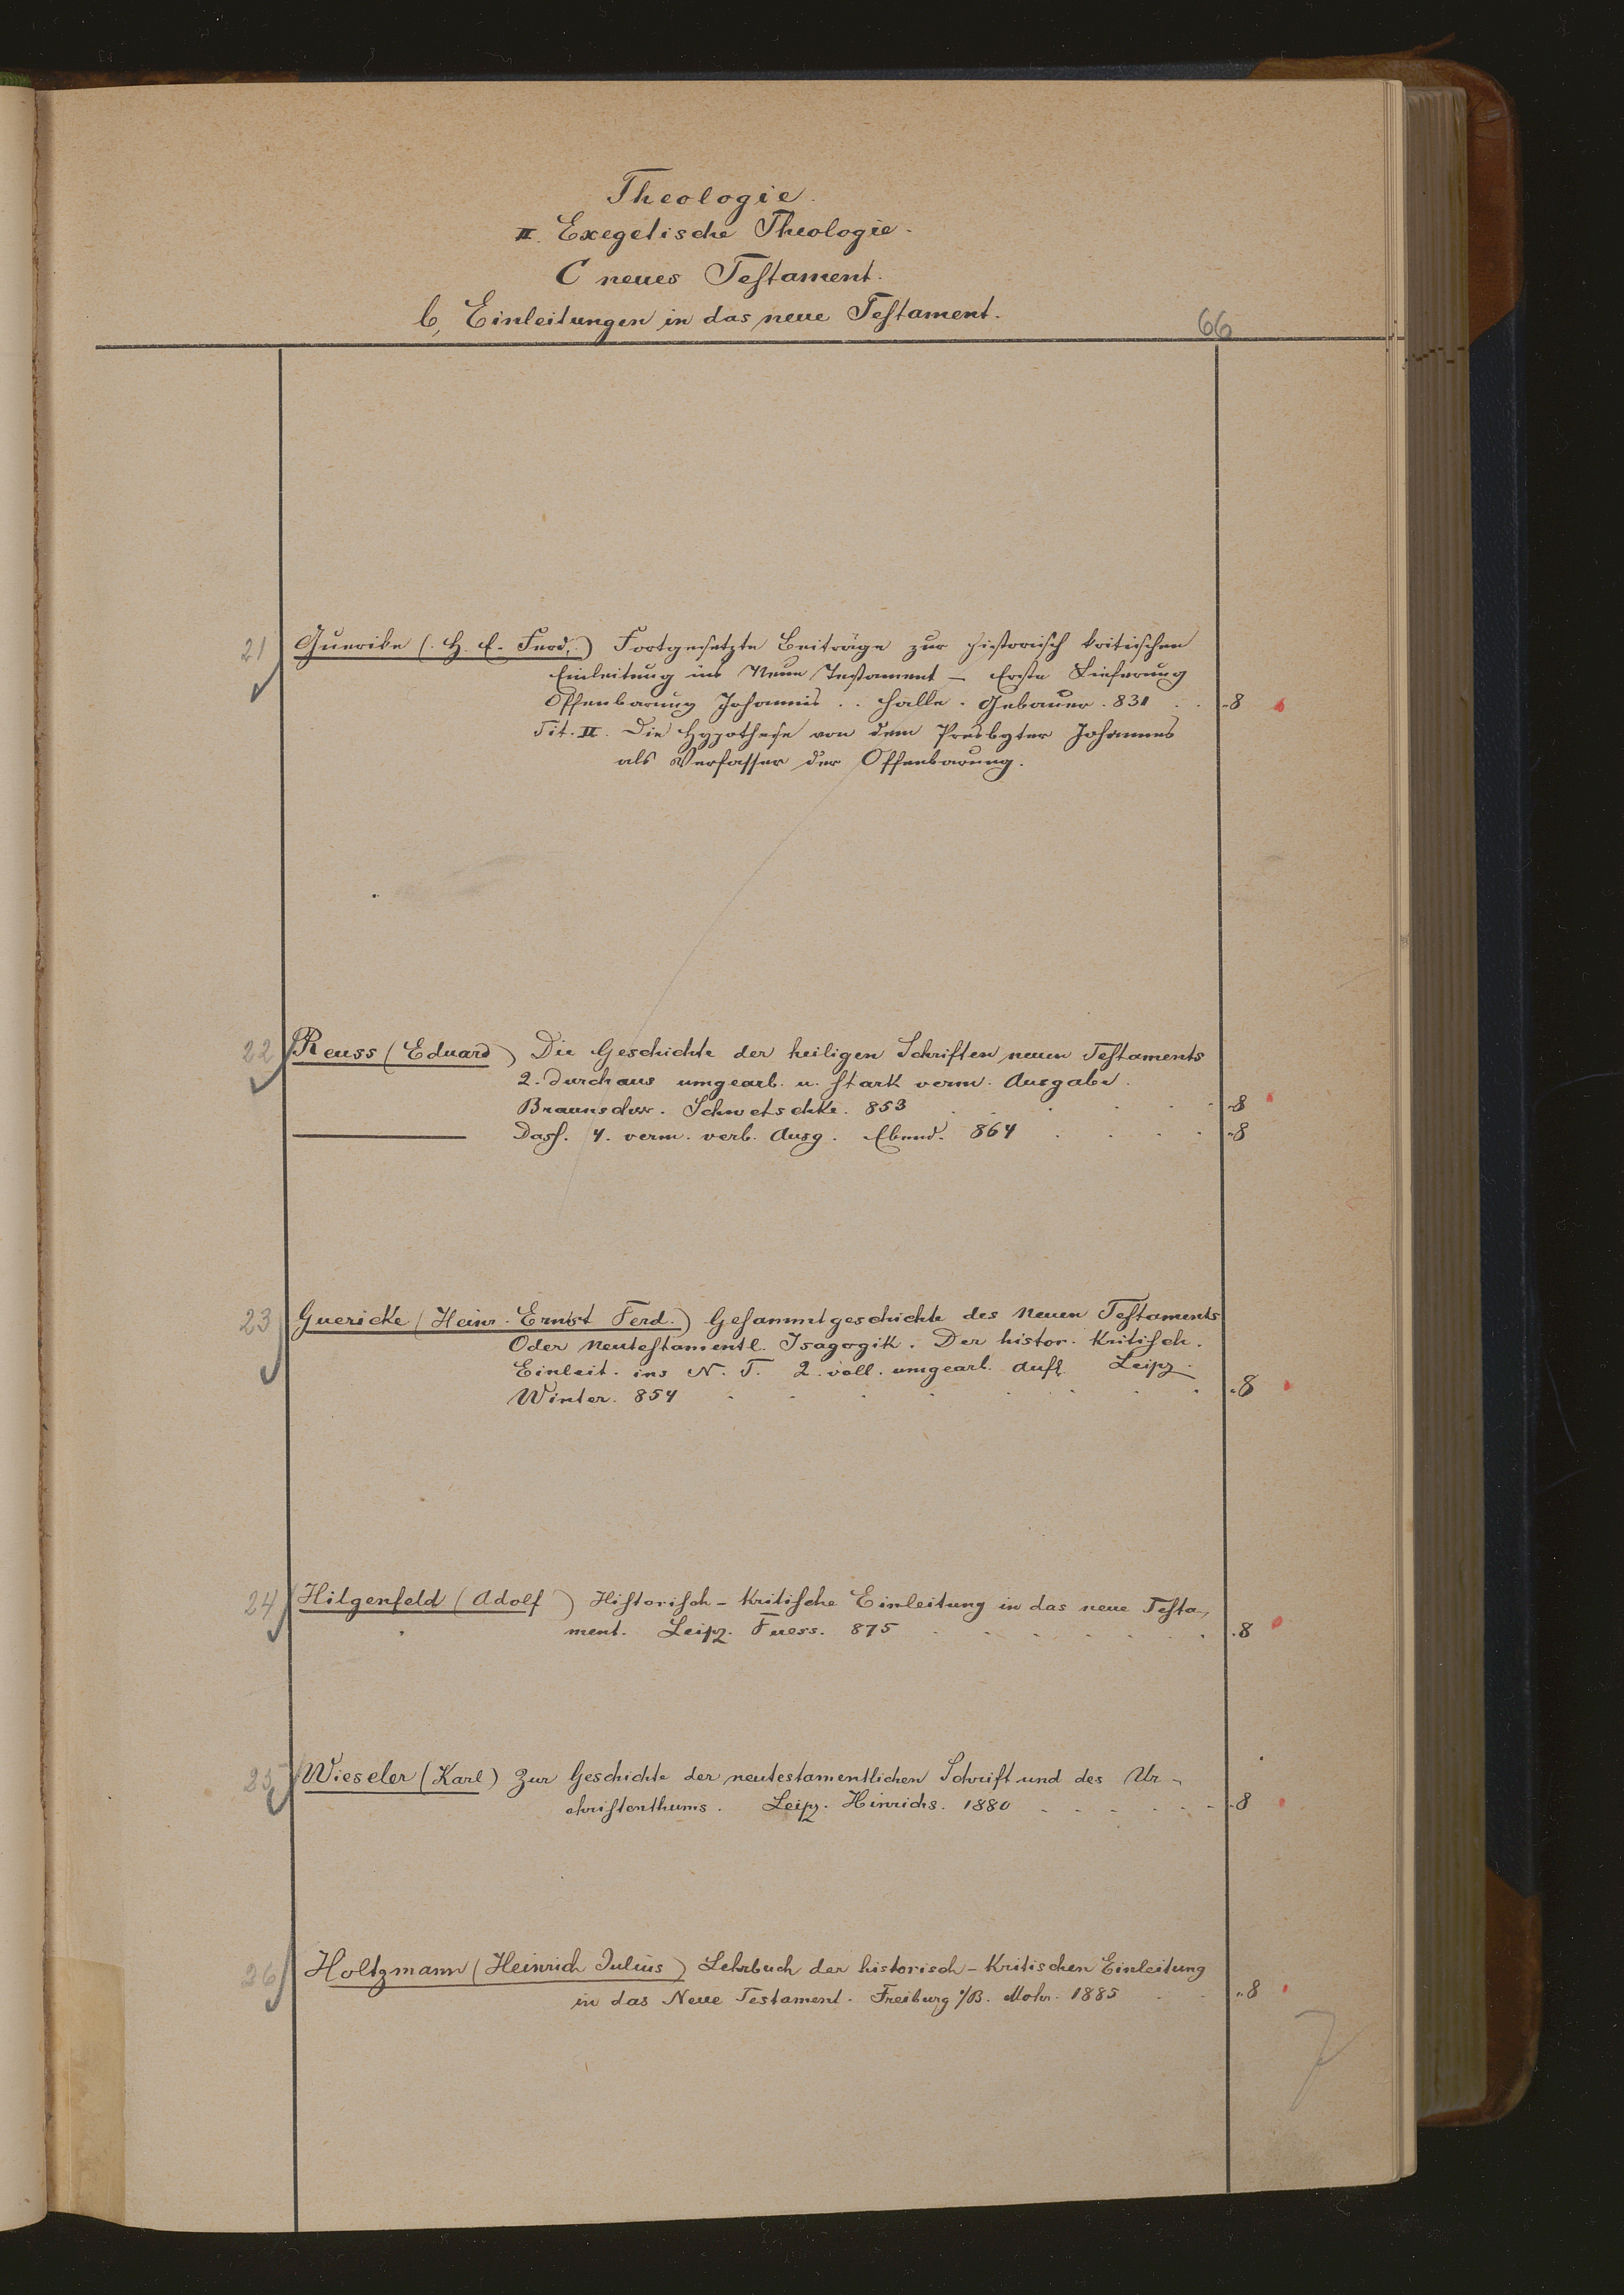 Theologie.
II. Exegetische Theologie.
C neues Testament.
b, Einleitungen in das neue Testament.
66
21 Guerike (H. E. Ferd.) Fortgesetzte Beiträge zur historisch kritischen
Einleitung ins Neue Testament – Erste Lieferung
Offenbarung Johannis . . Halle . Gebauer . 831 . . -8
Tit. II. Die Hypothese von dem Presbyter Johannes
als Verfasser der Offenbarung.
22 Reuss (Eduard) Die Geschichte der heiligen Schriften neuen Testaments
2. durchaus umgearb. u. stark verm. Ausgabe.
Braunschw. Schwetschke. 853 . . . . . -8
Dass. 4. verm. verb. Ausg. Ebend. 864 . . . . -8
23 Guericke (Heinr. Ernst Ferd.) Gesammtgeschichte des Neuen Testaments
Oder Neutestamentl. Isagogik. Der histor. Kritisch.
Einleit. ins N. T. 2. voll. umgearl. Aufl. Leipz.
Winter. 854 . . . . . . . . -8
24 Hilgenfeld (Adolf) Historisch-Kritische Einleitung in das neue Testa-
ment. Leipz. Fuess. 875 . . . . . . . -8
25 Wieseler (Karl) Zur Geschichte der neutestamentlichen Schrift und des Ur-
christenthums. Leipz. Hinrichs. 1880 . . . . . . -8
26 Holtzmann (Heinrich Julius) Lehrbuch der historisch-Kritischen Einleitung
in das Neue Testament. Freiburg i/B. Mohr. 1885 . . -8
7